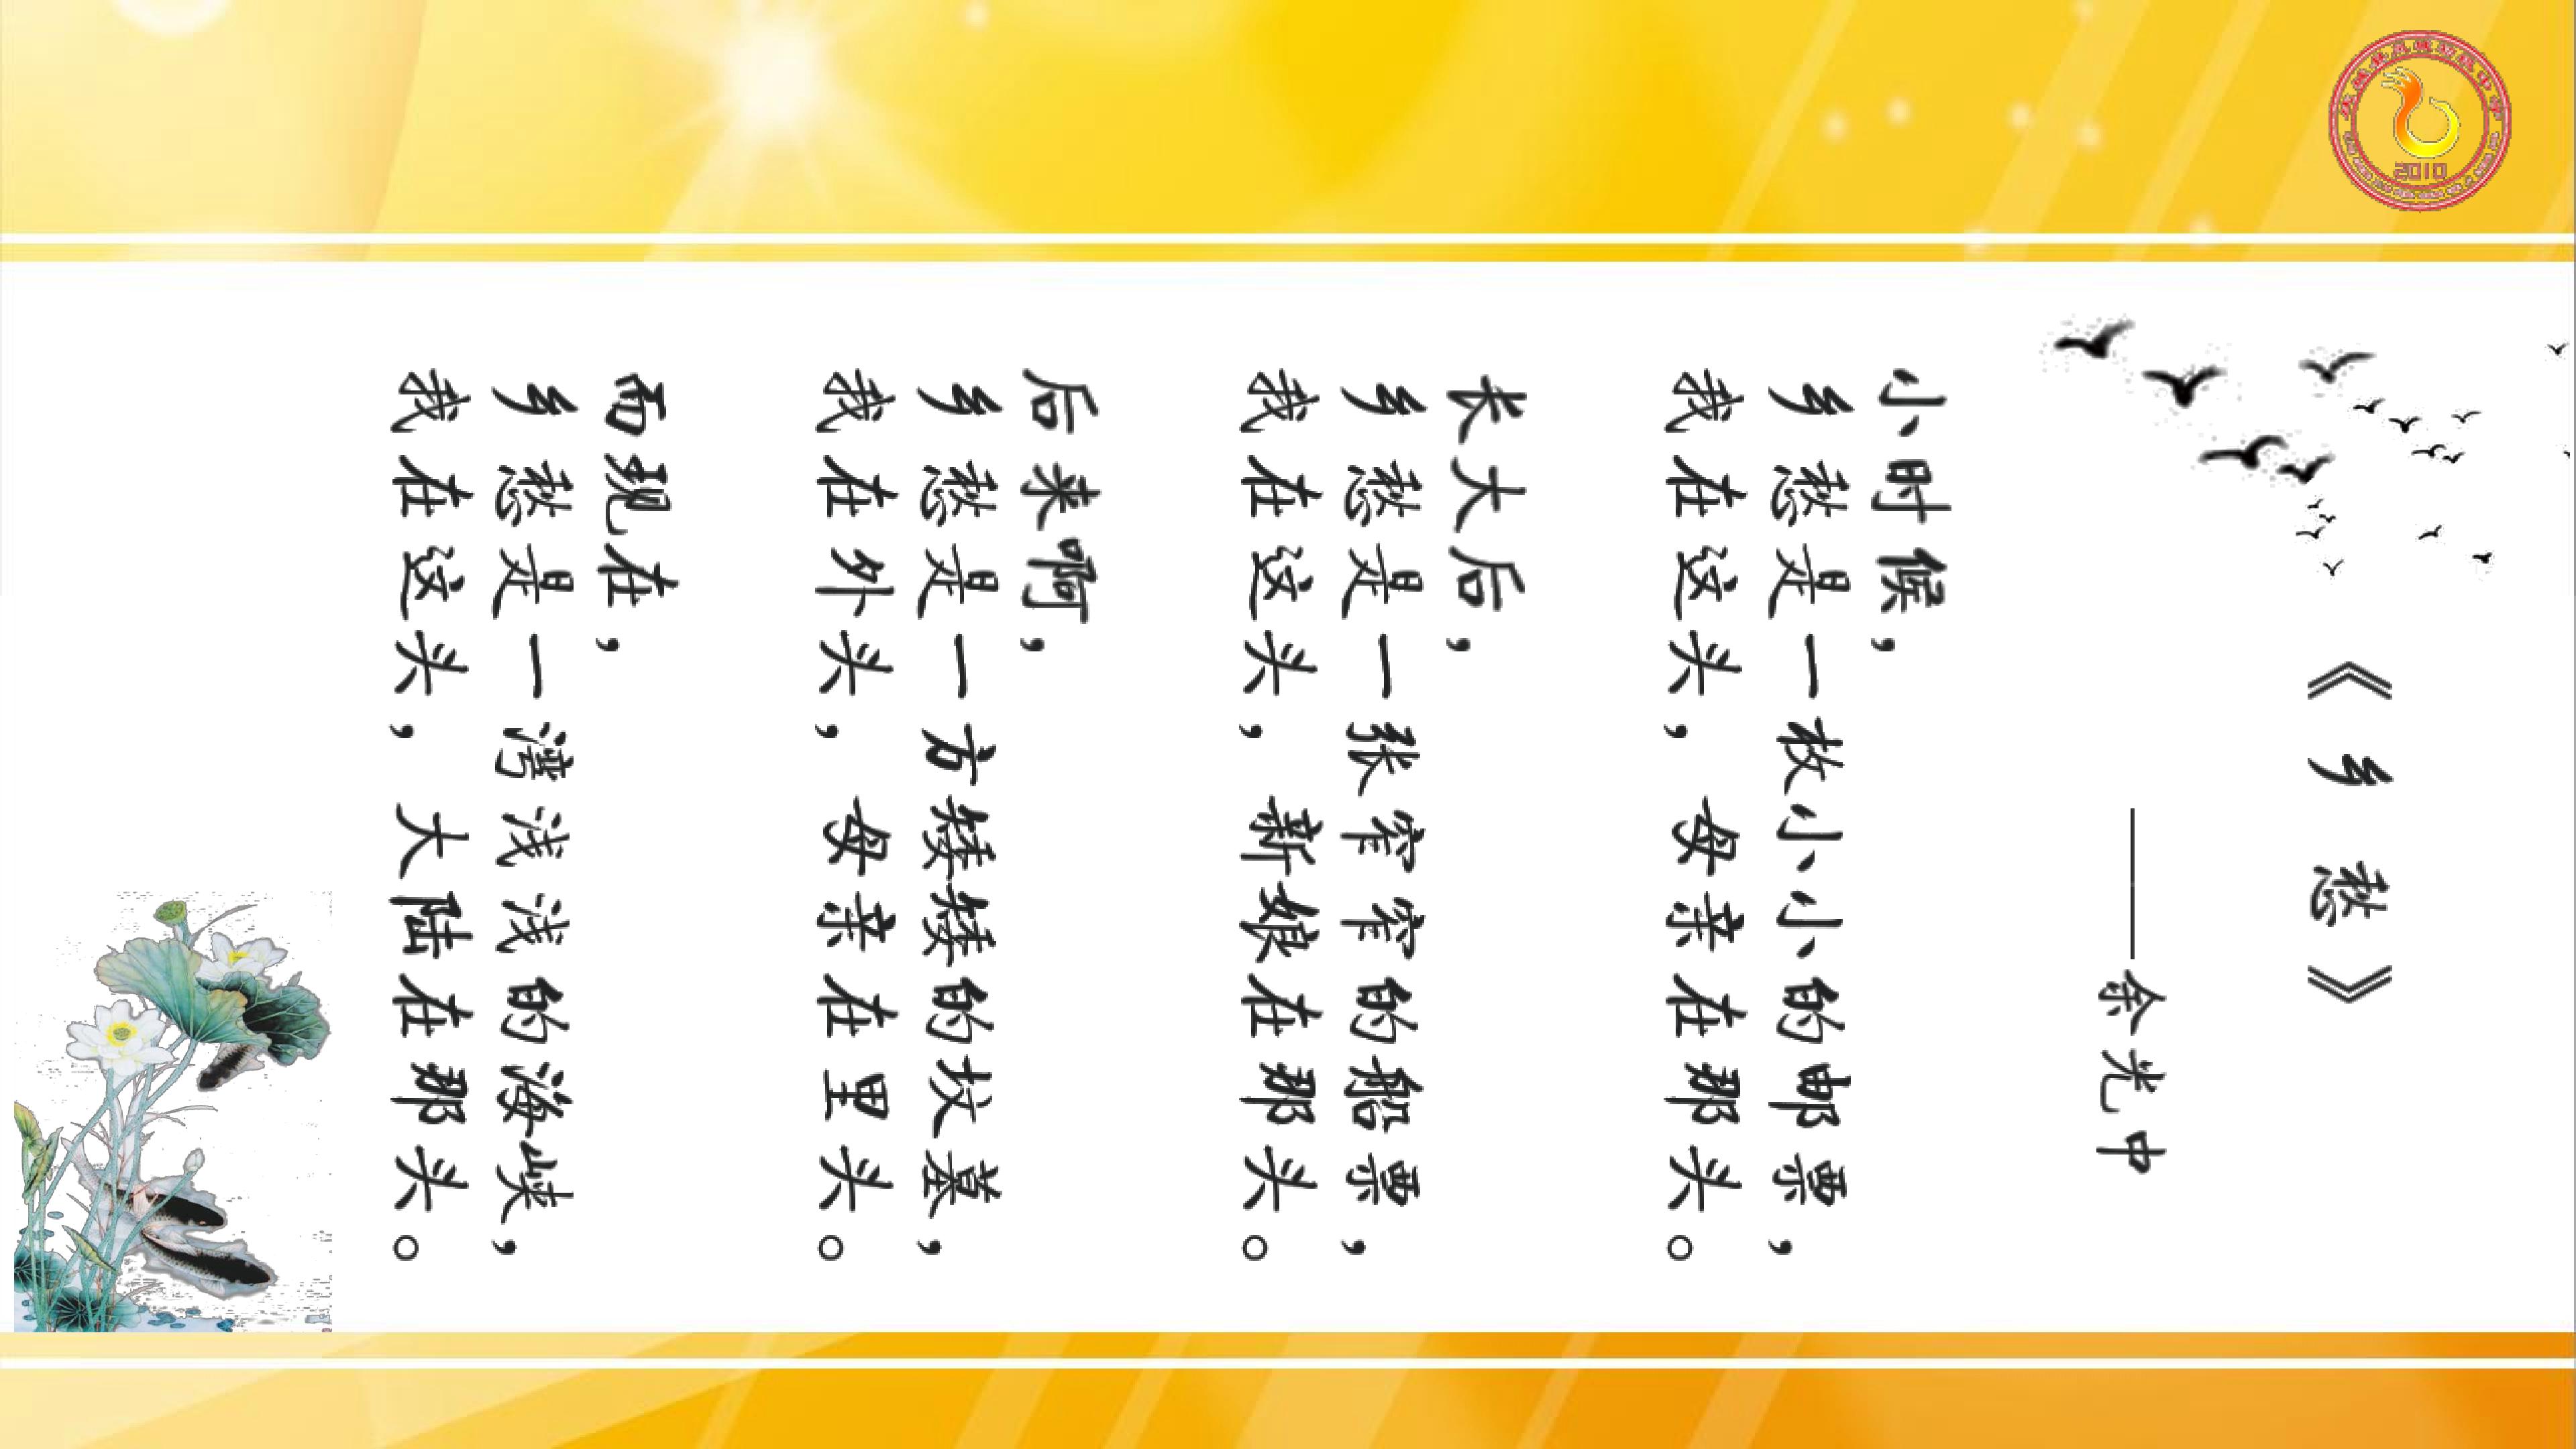 《乡愁》
——余光中
小时候，
乡愁是一枚小小的邮票，
我在这头，母亲在那头。
长大后，
乡愁是一张窄窄的船票，
我在这头，新娘在那头。
后来啊，
乡愁是一方矮矮的坟墓，
我在外头，母亲在里头。
而现在，
乡愁是一湾浅浅的海峡，
我在这头，大陆在那头。
2010